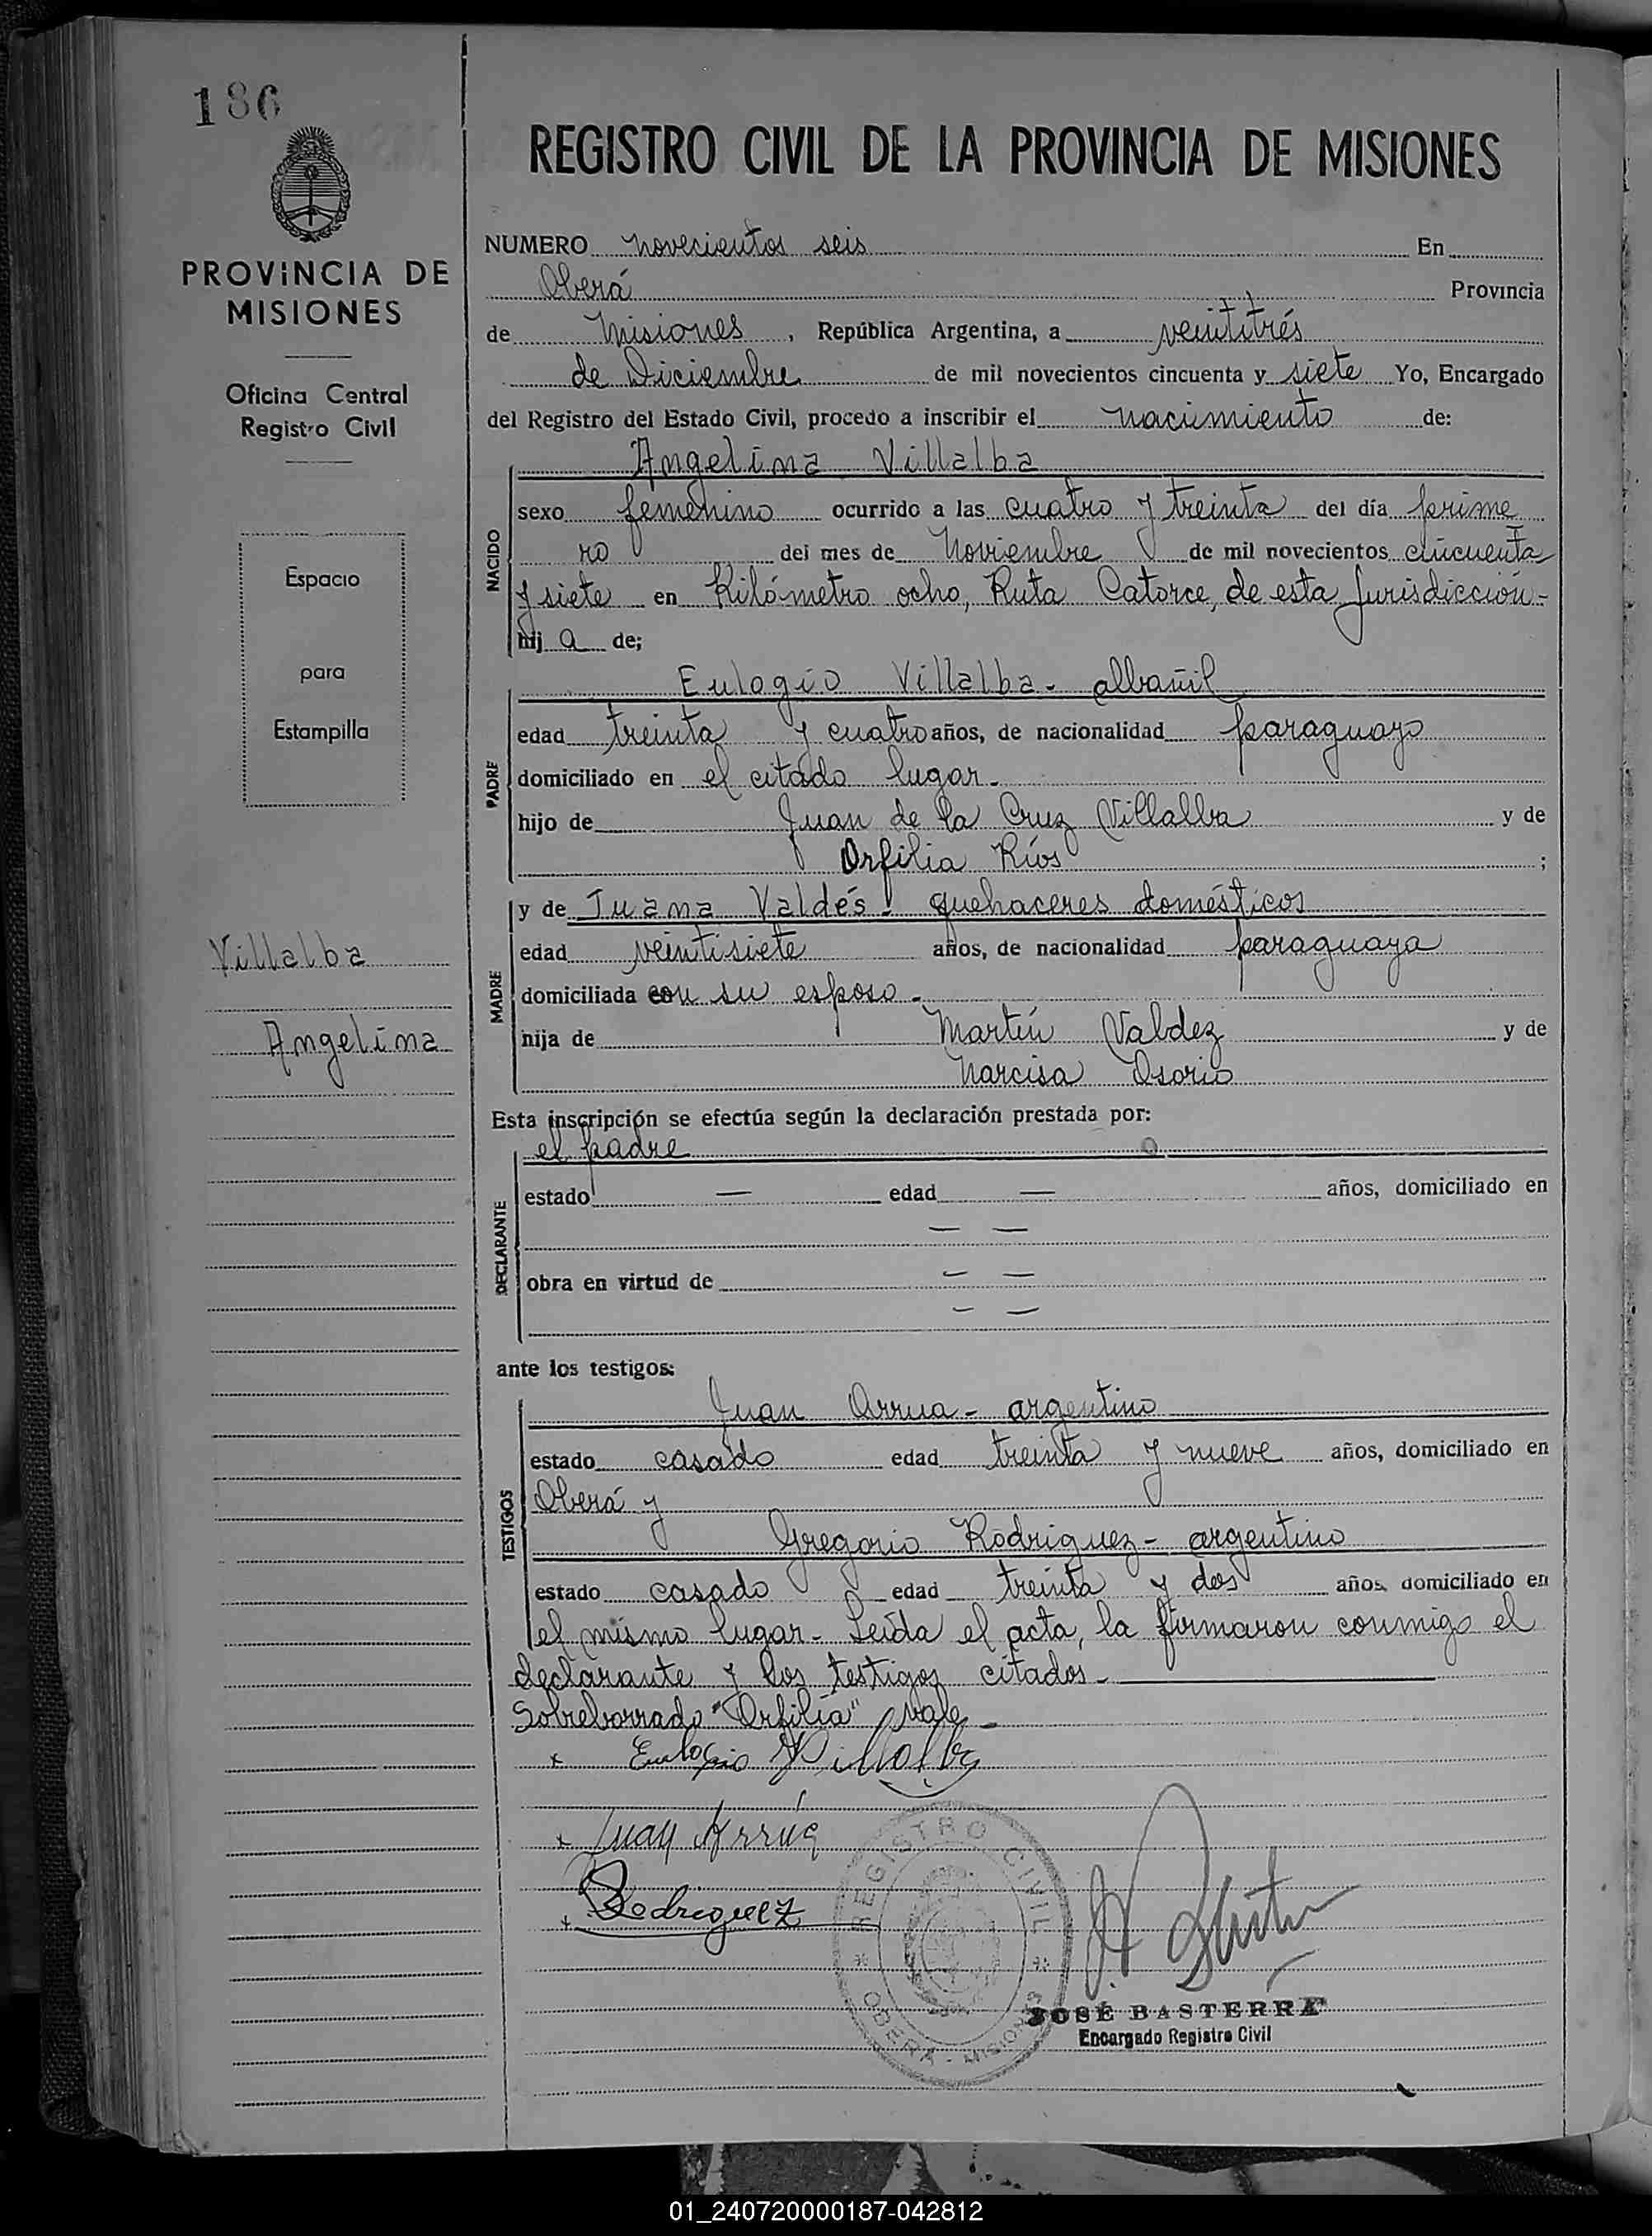 186
REGISTRO CIVIL DE LA PROVINCIA DE MISIONES
PROVINCIA DE
MISIONES
Oficina Central
Registro Civil
Espacio
para
Estampilla
Villalba
Angelina
NUMERO novecientos seis En
Oberá Provincia
de Misiones, República Argentina, a veintitrés
de Diciembre de mil novecientos cincuenta y siete Yo, Encargado
del Registro del Estado Civil, procedo a inscribir el nacimiento de:
Angelina Villalba
NACIDO
sexo femenino ocurrido a las cuatro y treinta del día prime
ro del mes de Noviembre de mil novecientos cincuenta
y siete en Kilómetro ocho, Ruta Catorce, de esta Jurisdicción-
hij a de;
PADRE
Eulogio Villalba- albañil
edad treinta y cuatro años, de nacionalidad paraguayo
domiciliado en el citado lugar-
hijo de Juan de la Cruz Villalba y de
Orfilia Ríos ;
MADRE
y de Juana Valdés- quehaceres domésticos
edad veintisiete años, de nacionalidad paraguaya
domiciliada con su esposo-
hija de Martín Valdez y de
Narcisa Osorio
Esta inscripción se efectúa según la declaración prestada por:
DECLARANTE
el padre
estado — edad — años, domiciliado en
— —
obra en virtud de — —
— —
ante los testigos:
TESTIGOS
Juan Arrua- argentino
estado casado edad treinta y nueve años, domiciliado en
Oberá y
Gregorio Rodriguez- argentino
estado casado edad treinta y dos años, domiciliado en
el mismo lugar- Leída el acta, la firmaron conmigo el
declarante y los testigos citados-
Sobreborrado "Orfilia" vale-
x Eulogio Villalba
x Juan Arrúa
x Rodriguez
REGISTRO CIVIL
OBERÁ - MISIONES
JOSÉ BASTERRA
Encargado Registro Civil
01_240720000187-042812